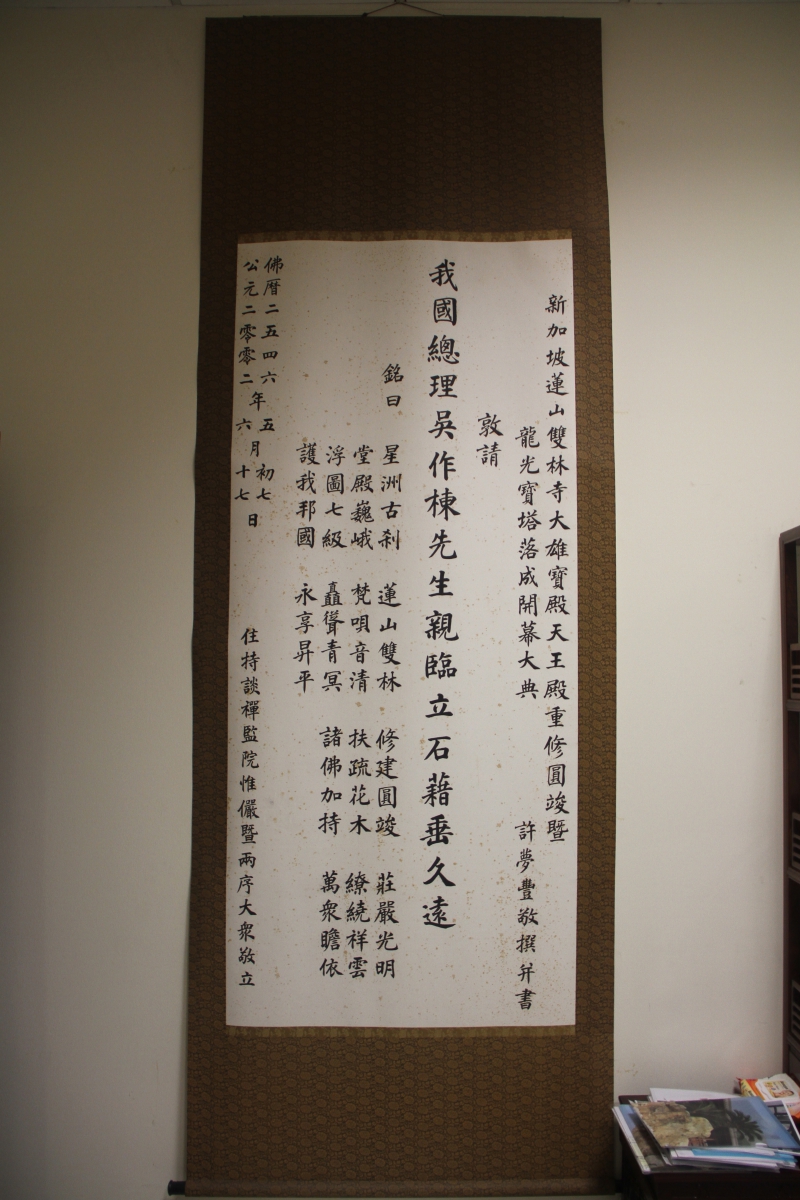 新加坡蓮山雙林寺大雄寶殿天王殿重修圓竣暨
龍光寶塔落成開幕大典 許夢豐敬撰并書
敦請
我國總理吳作棟先生親臨立石藉垂久遠
銘曰
星洲古刹 蓮山雙林 修建圓竣 莊嚴光明
堂殿巍峨 梵唄音清 扶疏花木 繚繞祥雲
浮圖七級 矗聳青冥 諸佛加持 萬衆瞻依
護我邦國 永享昇平
佛曆二五四六年五月初七日
公元二零零二年六月十七日
住持談禪監院惟儼暨兩序大衆敬立